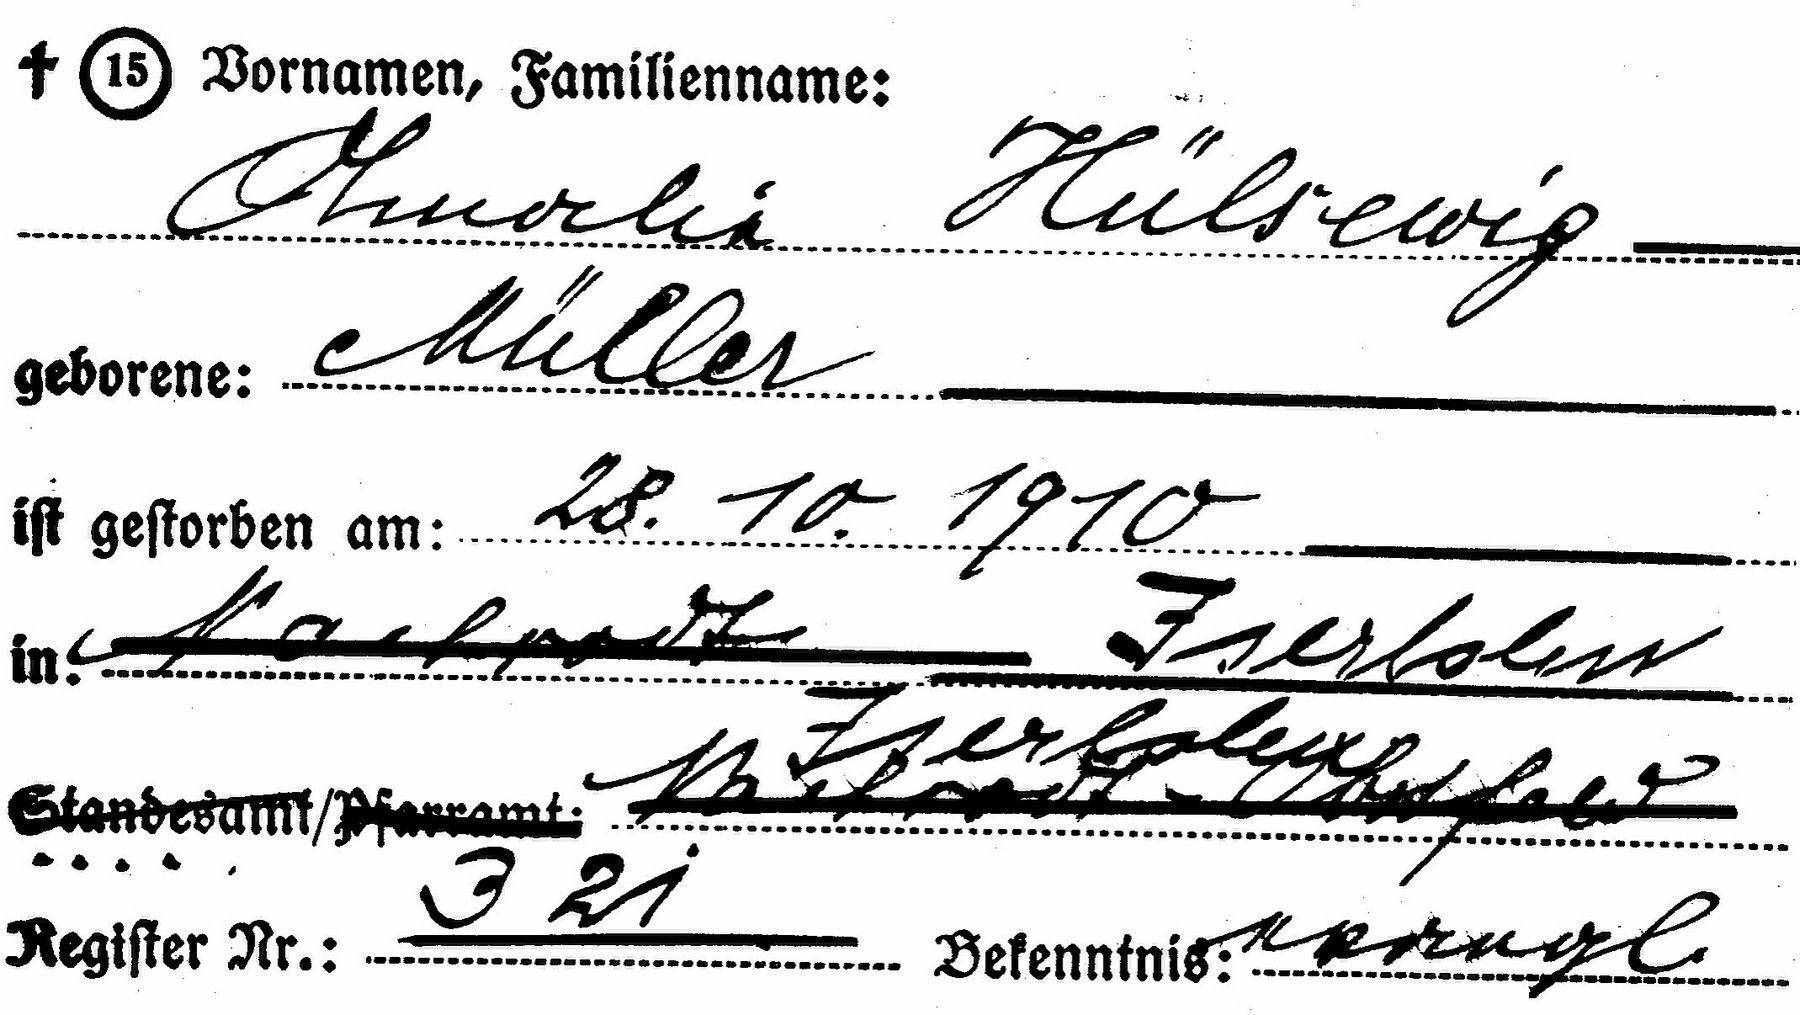 † 15 Vornamen, Familienname:
Amalie Hülsewig
geborene: Müller
ist gestorben am: 28. 10. 1910
in: Iserlohn
Iserlohn
Standesamt/Pfarramt:
Register Nr.: 321 Bekenntnis: evangl.